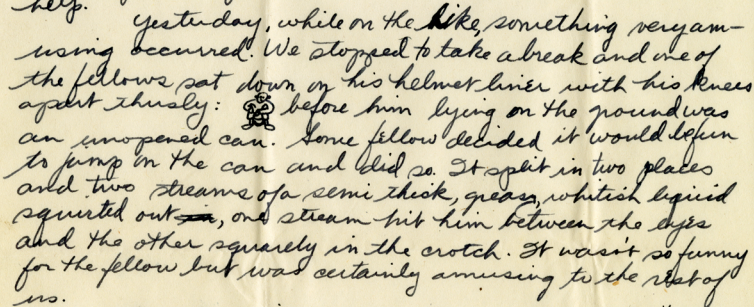 help.
Yesterday, while on the hike, something very am-
using occurred. We stopped to take a break and one of
the fellows sat down on his helmet liner with his knees
apart thusly: before him lying on the ground was
an unopened can. Some fellow decided it would be fun
to jump on the can and did so. It split in two places
and two streams of a semi thick, greasy, whitish liquid
squirted out, one stream hit him between the eyes
and the other squarely in the crotch. It wasn't so funny
for the fellow but was certainly amusing to the rest of
us.